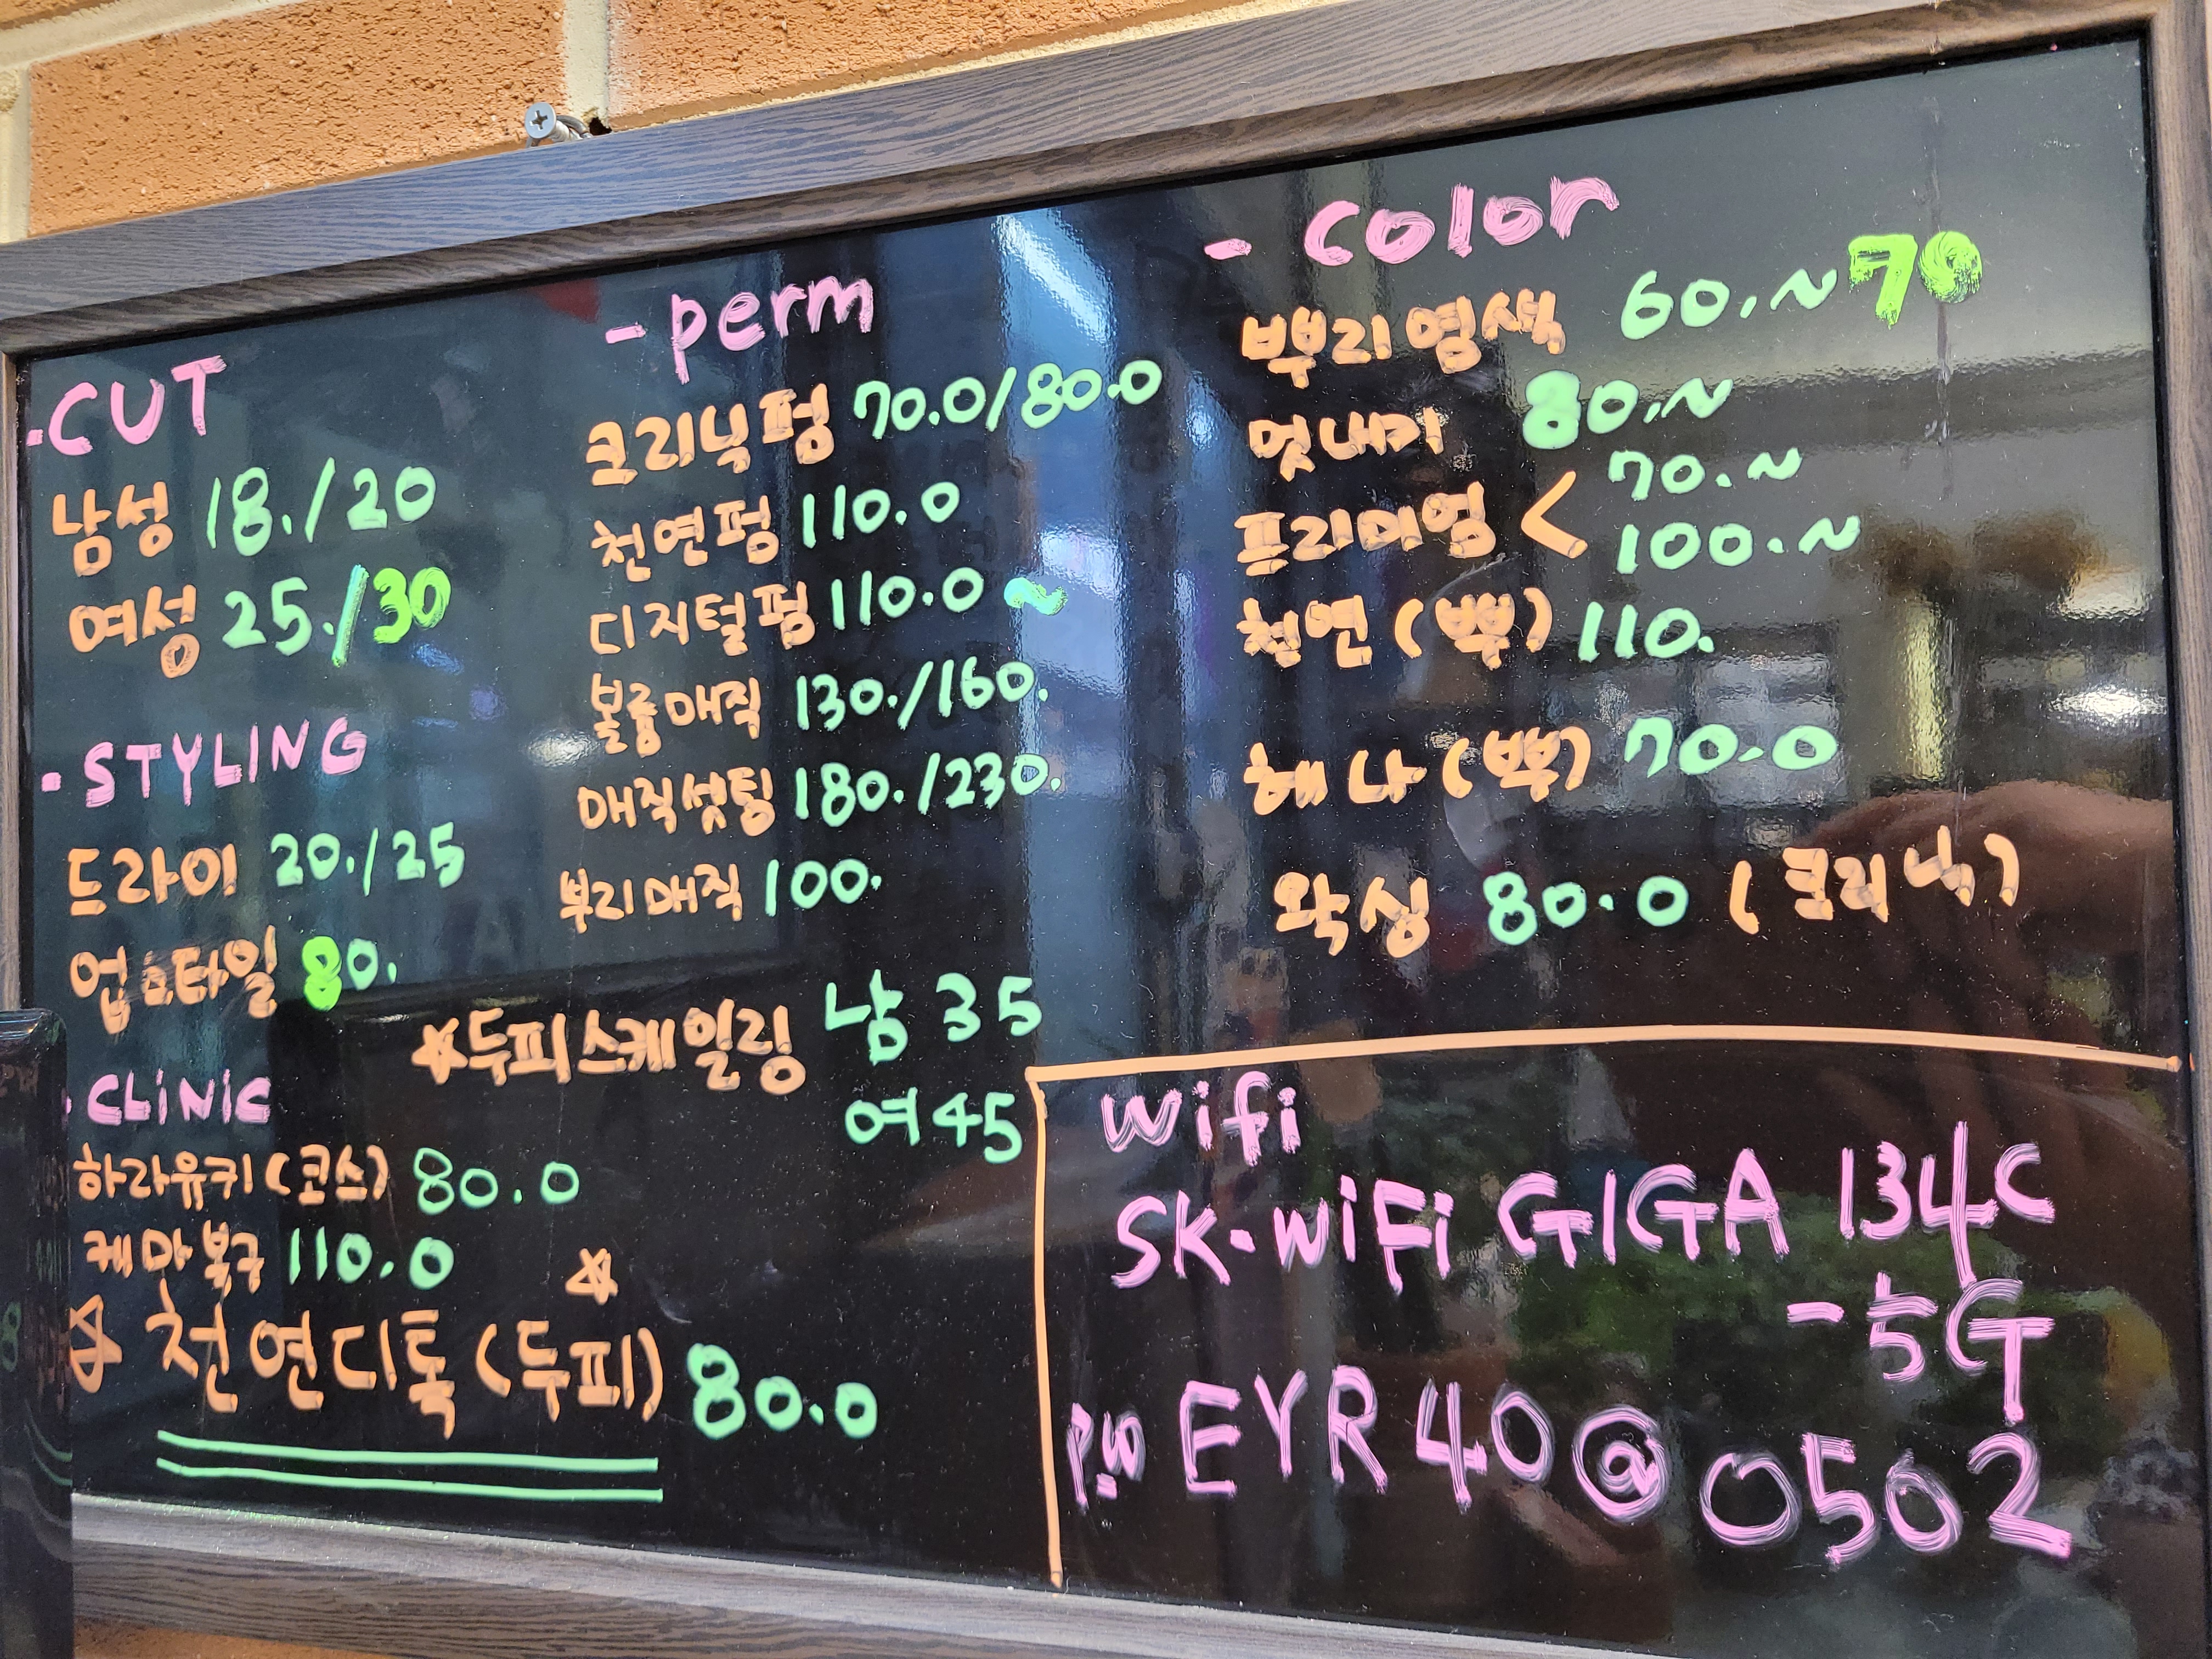 ·CUT
남성 18./20
여성 25./30
·STYLING
드라이 20./25
업스타일 80.
·CLiNiC
하라유키(코스) 80.0
케마복구 110.0
☆ 천연디톡(두피) ☆ 80.0
-perm
크리닉펌 70.0/80.0
천연펌 110.0
디지털펌 110.0~
볼륨매직 130./160.
매직셋팅 180./230.
뿌리매직 100.
☆두피스케일링 남 35
여 45
-color
뿌리염색 60.~70
멋내기 80.~
프리미엄 < 70.~
100.~
천연(뿌) 110.
헤나(뿌) 70.0
왁싱 80.0 (크리닉)
wifi
SK-WiFi GIGA 134C
-5G
P.W EYR40@0502